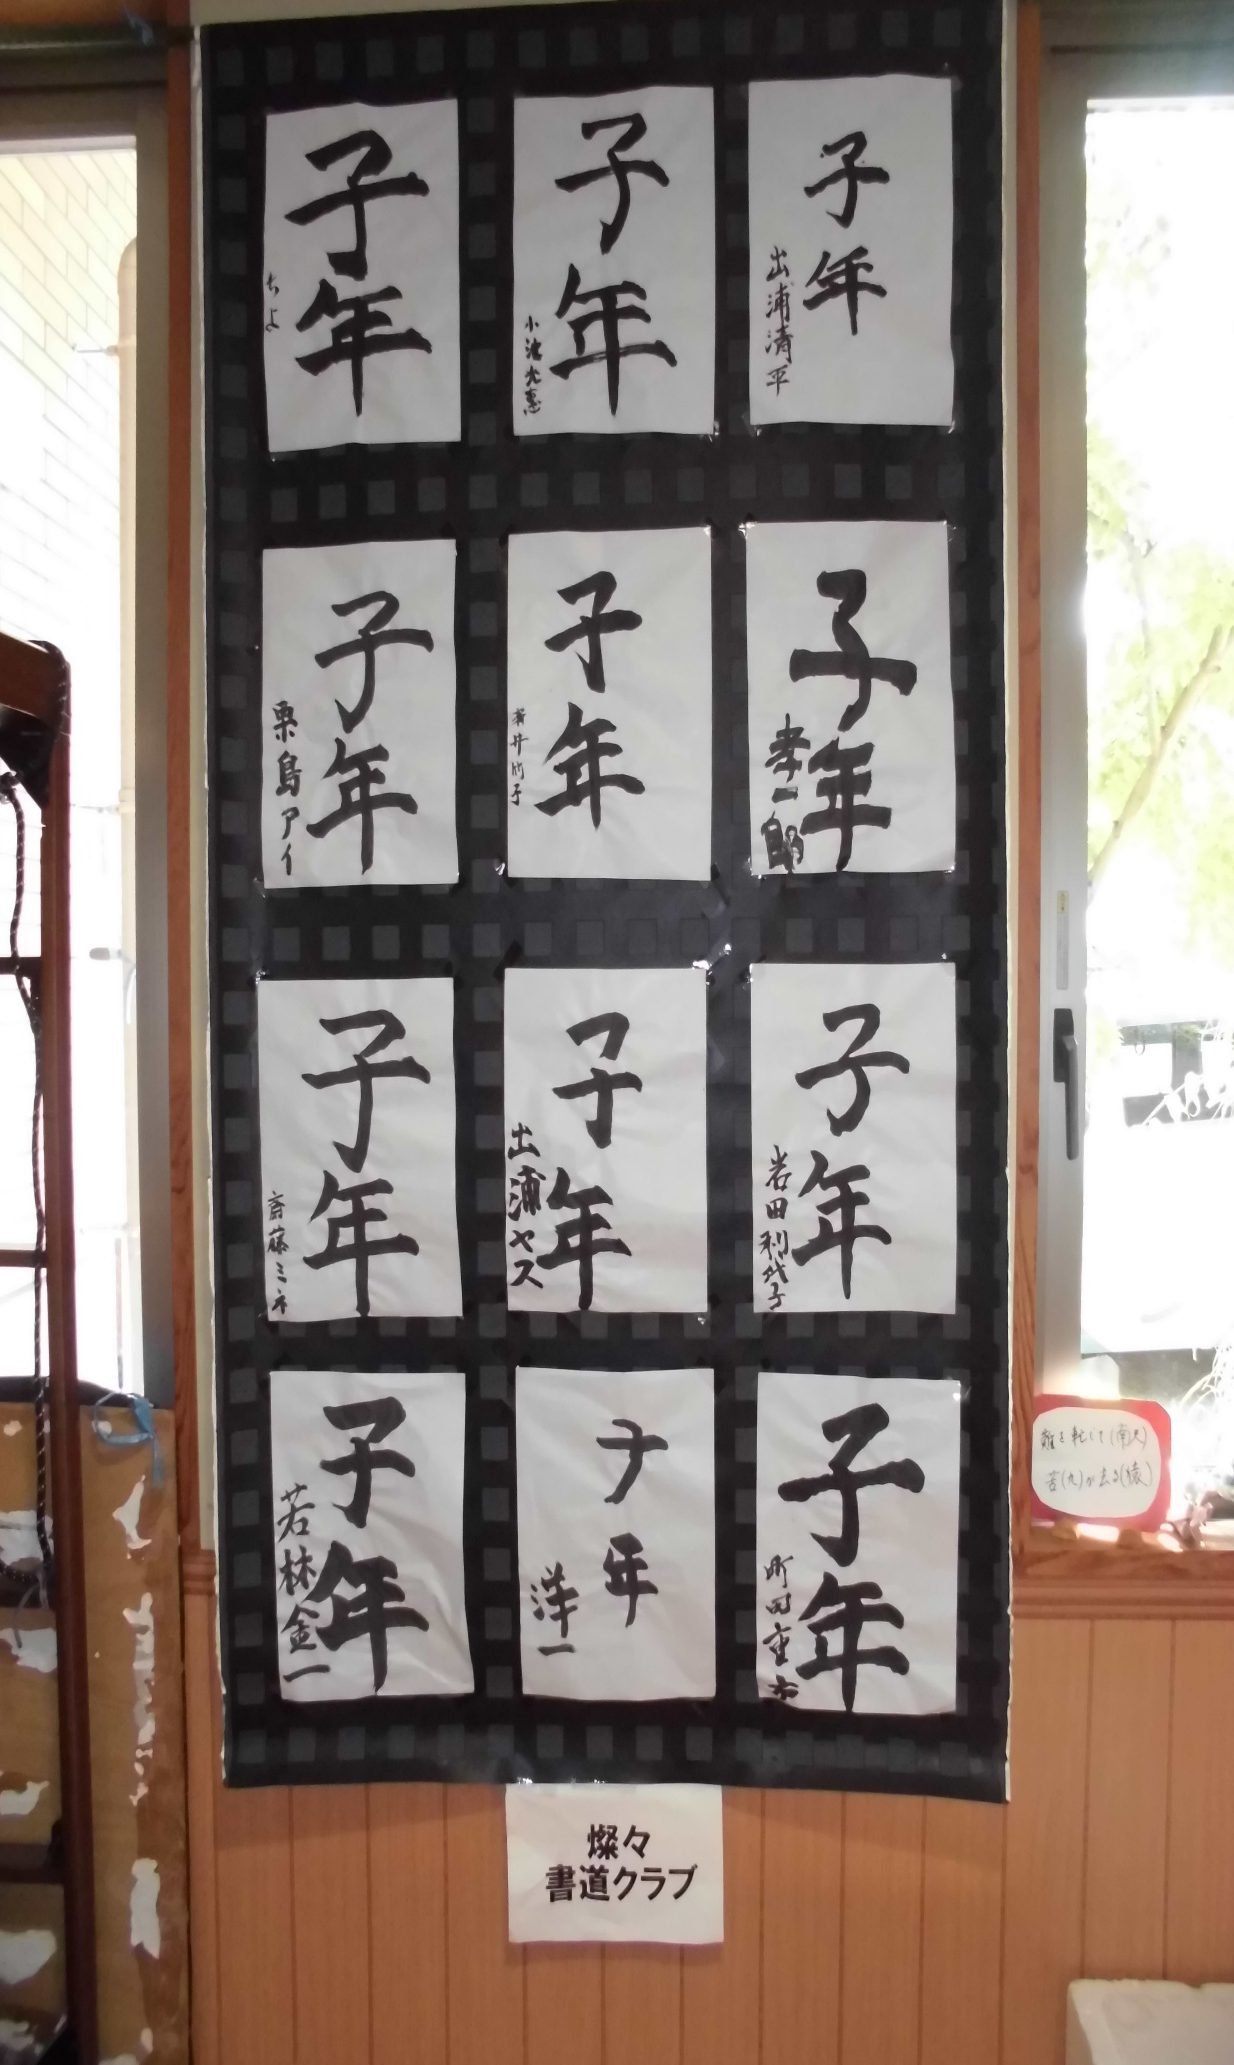 子年
出浦清平
子年
小池光恵
子年
ちよ
子年
孝一郎
子年
子年
栗島アイ
子年
岩田利代子
子年
出浦ヤス
子年
斎藤ミネ
子年
町田重市
子年
洋一
子年
若林金一
燦々
書道クラブ
難を転じて(南天)
苦(九)が去る(猿)